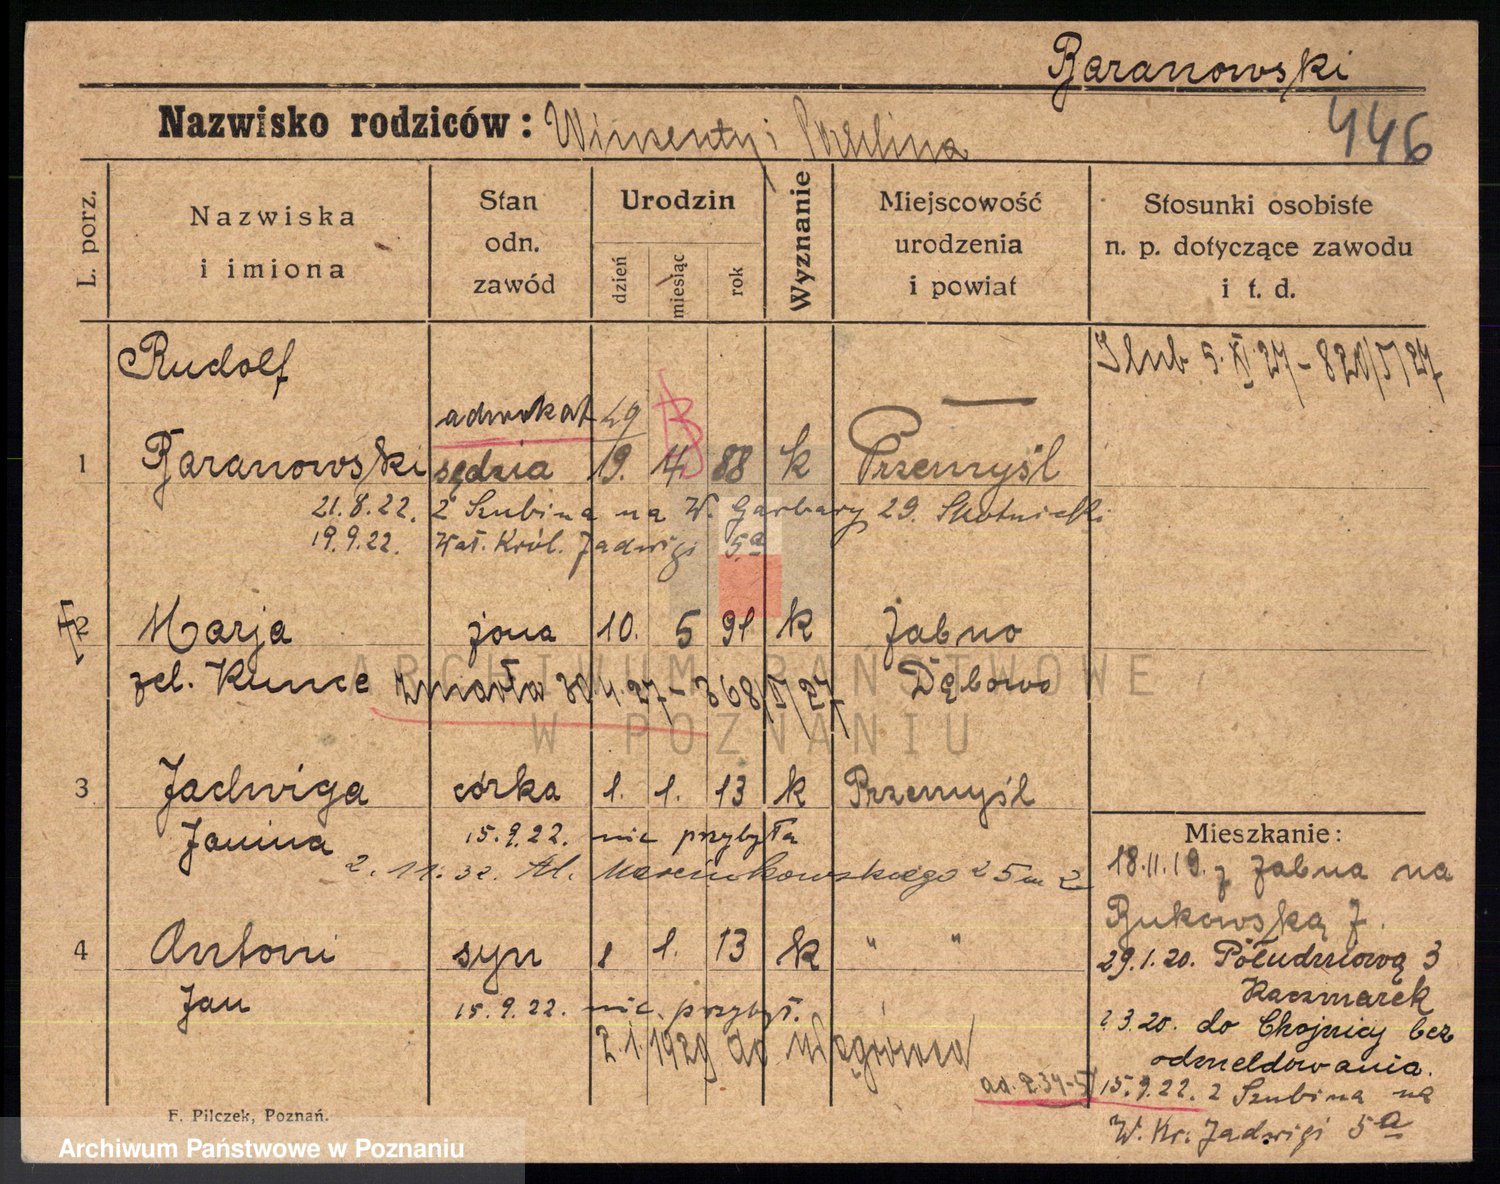 Baranowski
Nazwisko rodziców: Wincenty i Paulina
446
L. porz.
Nazwiska
i imiona
Stan
odn.
zawód
Urodzin
dzień
miesiąc
rok
Wyznanie
Miejscowość
urodzenia
i powiat
Stosunki osobiste
n. p. dotyczące zawodu
i t. d.
Rudolf
Ślub 5. XI. 27 - 820/V/27
adwokat 29
1 Baranowski sędzia 19. 4 88 k Przemyśl
21.8.22. z Szubina na W. Garbary 29. Skotnicki
19.9.22. Wał. Król. Jadwigi 5a
2 Marja żona 10. 5 91 k Żabno
zel. Kunce zmarła 30 4. 27 - 368/V/27 Dąbowo
3 Jadwiga córka 1. 1. 13 k Przemyśl
Janina 15.9.22. nie przybyła
2. 11. 32. Al. Marcinkowskiego 25 m 2
4 Antoni syn 1 1. 13 k " "
Jan 15.9.22. nie przybył.
2.1.1929 do Wągrowca
Mieszkanie:
18.11.19. z Żabna na
Bukowską 7.
29.1.20. Południową 3
Kaczmarek
2.3.20. do Chojnicy bez
odmeldowania.
ad. 234-V
15.9.22. z Szubina na
W. Kr. Jadwigi 5a
F. Pilczek, Poznań.
ARCHIWUM PAŃSTWOWE
W POZNANIU
Archiwum Państwowe w Poznaniu